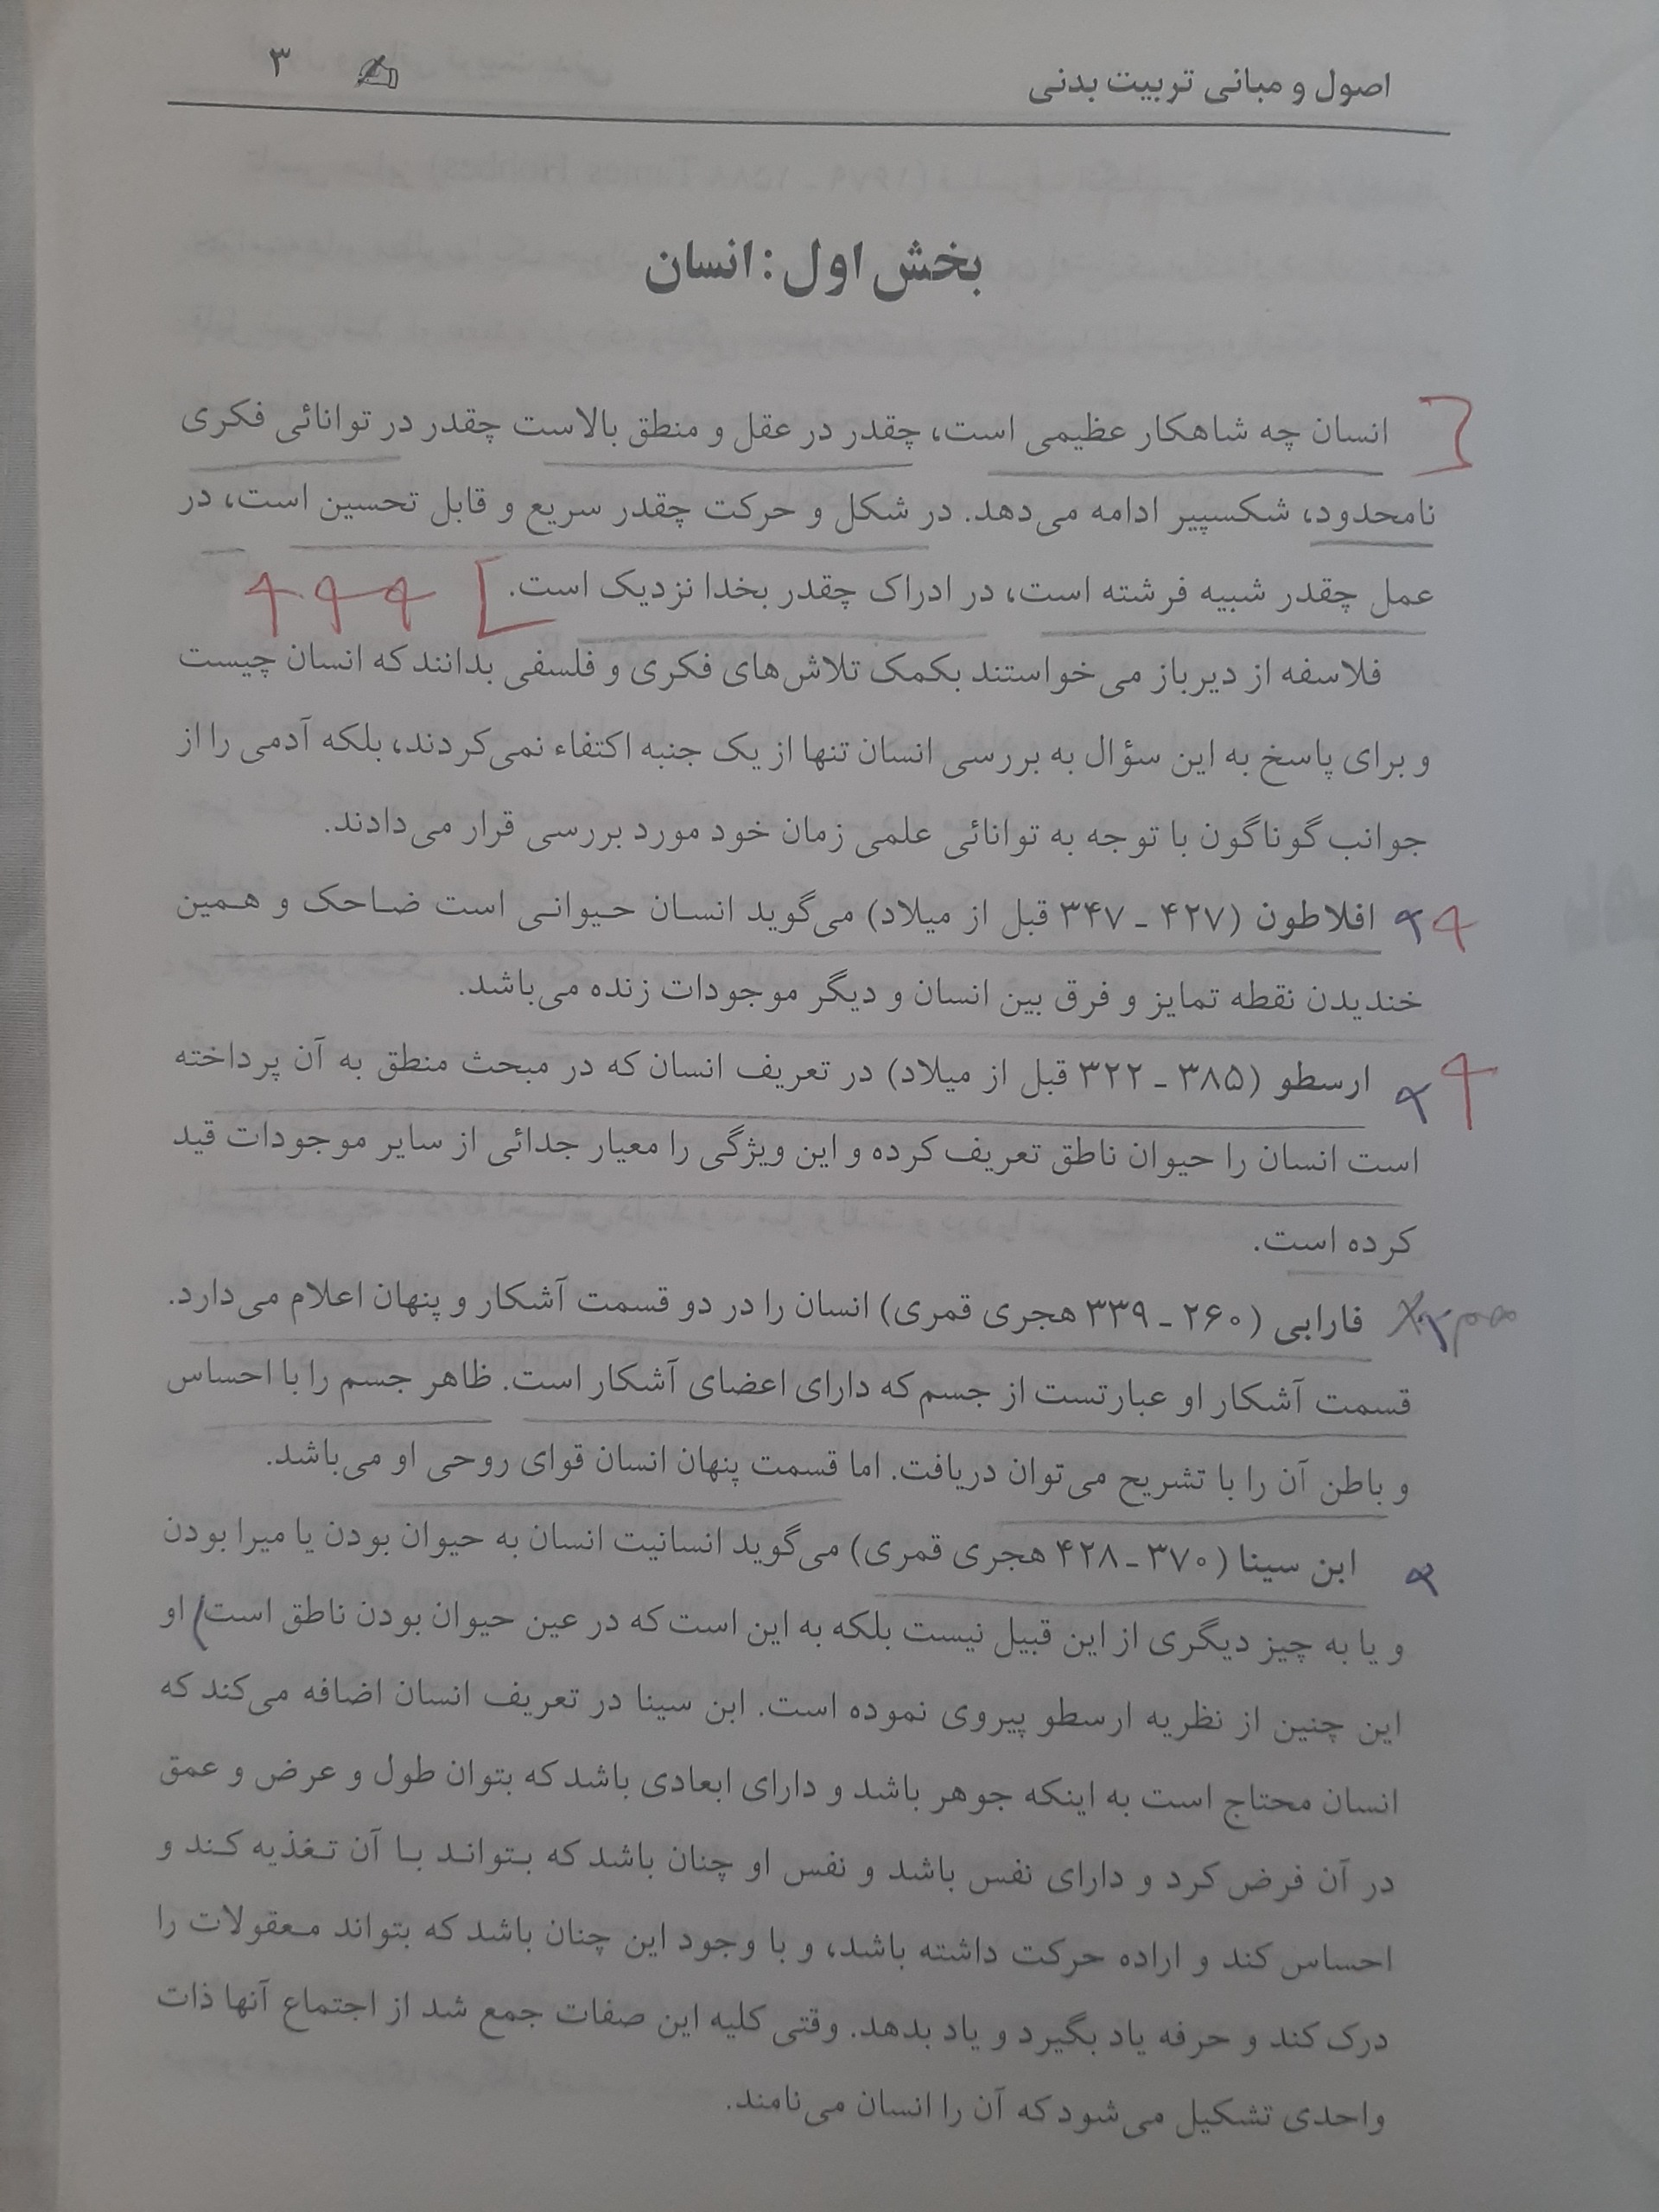 اصول و مبانی تربیت بدنی ۳
بخش اول : انسان
انسان چه شاهکار عظیمی است، چقدر در عقل و منطق بالاست چقدر در توانائی فکری
نامحدود، شکسپیر ادامه می‌دهد. در شکل و حرکت چقدر سریع و قابل تحسین است، در
عمل چقدر شبیه فرشته است، در ادراک چقدر بخدا نزدیک است.
فلاسفه از دیرباز می‌خواستند بکمک تلاش‌های فکری و فلسفی بدانند که انسان چیست
و برای پاسخ به این سؤال به بررسی انسان تنها از یک جنبه اکتفاء نمی‌کردند، بلکه آدمی را از
جوانب گوناگون با توجه به توانائی علمی زمان خود مورد بررسی قرار می‌دادند.
افلاطون (۴۲۷ ـ ۳۴۷ قبل از میلاد) می‌گوید انسان حیوانی است ضاحک و همین
خندیدن نقطه تمایز و فرق بین انسان و دیگر موجودات زنده می‌باشد.
ارسطو (۳۸۵ ـ ۳۲۲ قبل از میلاد) در تعریف انسان که در مبحث منطق به آن پرداخته
است انسان را حیوان ناطق تعریف کرده و این ویژگی را معیار جدائی از سایر موجودات قید
کرده است.
فارابی (۲۶۰ ـ ۳۳۹ هجری قمری) انسان را در دو قسمت آشکار و پنهان اعلام می‌دارد.
قسمت آشکار او عبارتست از جسم که دارای اعضای آشکار است. ظاهر جسم را با احساس
و باطن آن را با تشریح می‌توان دریافت. اما قسمت پنهان انسان قوای روحی او می‌باشد.
ابن سینا (۳۷۰ ـ ۴۲۸ هجری قمری) می‌گوید انسانیت انسان به حیوان بودن یا میرا بودن
و یا به چیز دیگری از این قبیل نیست بلکه به این است که در عین حیوان بودن ناطق است) او
این چنین از نظریه ارسطو پیروی نموده است. ابن سینا در تعریف انسان اضافه می‌کند که
انسان محتاج است به اینکه جوهر باشد و دارای ابعادی باشد که بتوان طول و عرض و عمق
در آن فرض کرد و دارای نفس باشد و نفس او چنان باشد که بتواند با آن تغذیه کند و
احساس کند و اراده حرکت داشته باشد، و با وجود این چنان باشد که بتواند معقولات را
درک کند و حرفه یاد بگیرد و یاد بدهد. وقتی کلیه این صفات جمع شد از اجتماع آنها ذات
واحدی تشکیل می‌شود که آن را انسان می‌نامند.